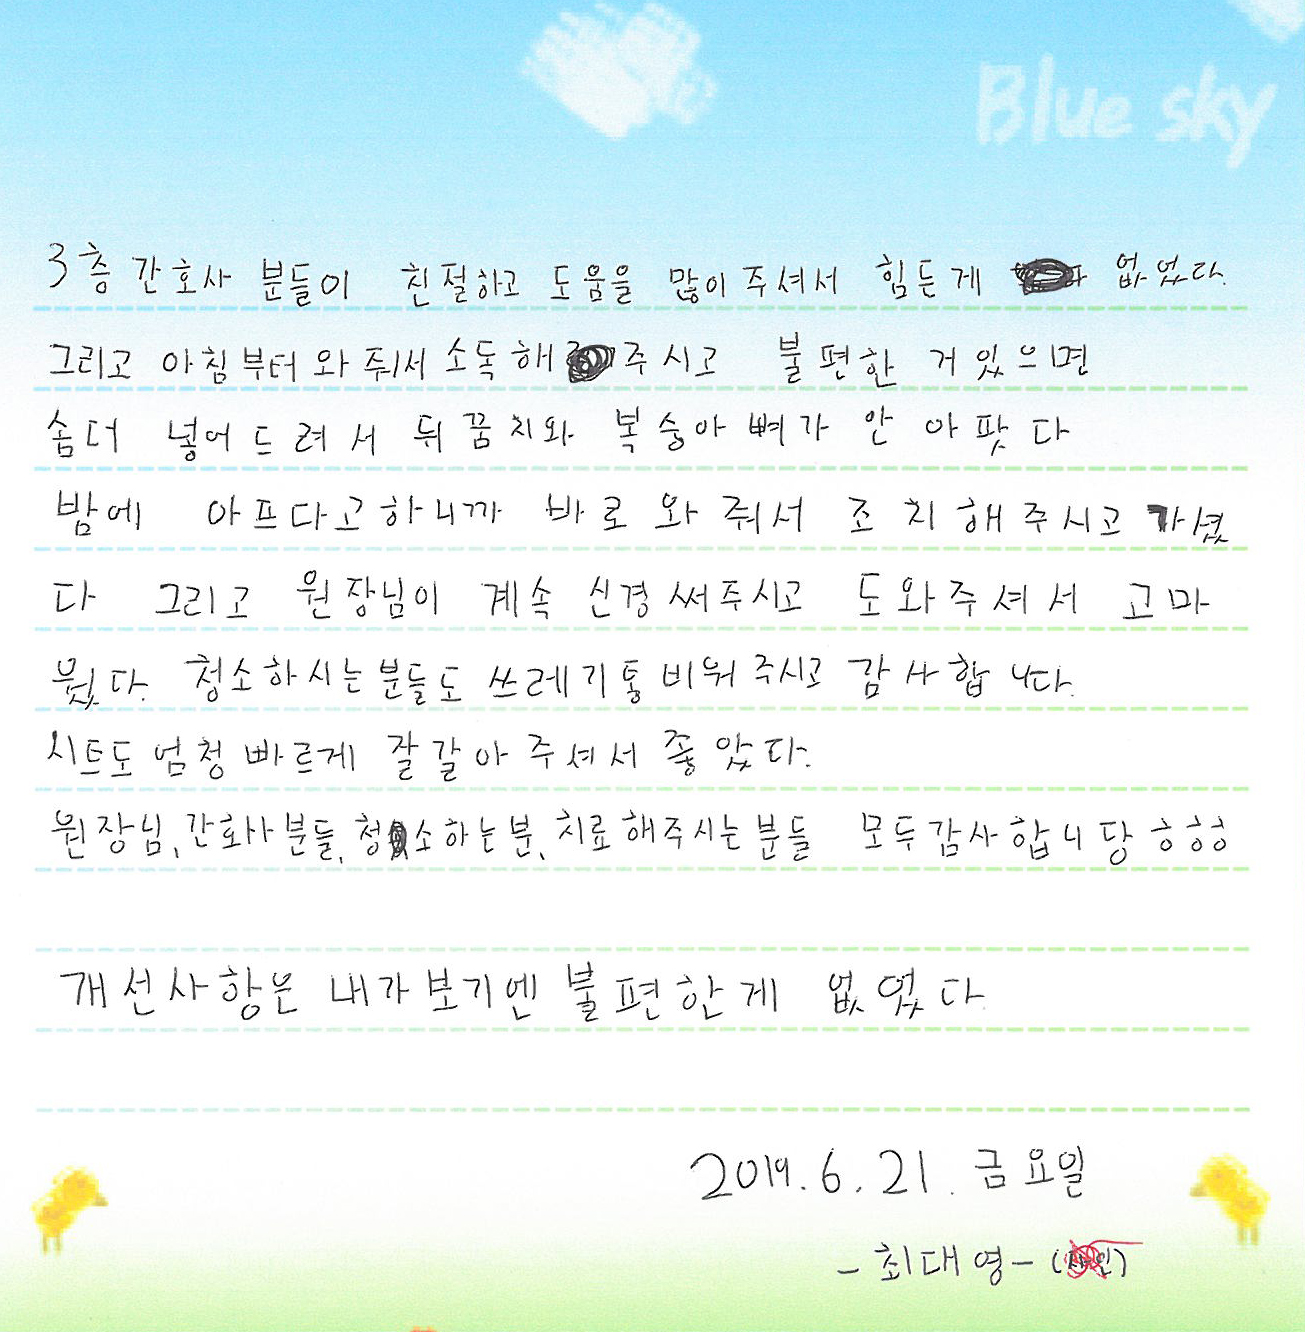 Blue sky
3층 간호사 분들이 친절하고 도움을 많이 주셔서 힘든게 없었다.
그리고 아침부터 와 주셔서 소독해 주시고 불편한 거 있으면
솜더 넣어 드려서 뒤꿈치와 복숭아뼈가 안 아팟다
밤에 아프다고하니까 바로 와 줘서 조치해주시고 가셨
다 그리고 원장님이 계속 신경써주시고 도와주셔서 고마
웠다. 청소하시는분들도 쓰레기통비워주시고 감사합니다.
시트도 엄청 빠르게 잘갈아 주셔서 좋았다.
원장님, 간호사분들, 청소하는분, 치료해주시는분들 모두감사합니당 ㅎㅎㅎ
개선사항은 내가보기엔 불편한게 없었다
2019. 6. 21. 금요일
- 최대영 - (사인)